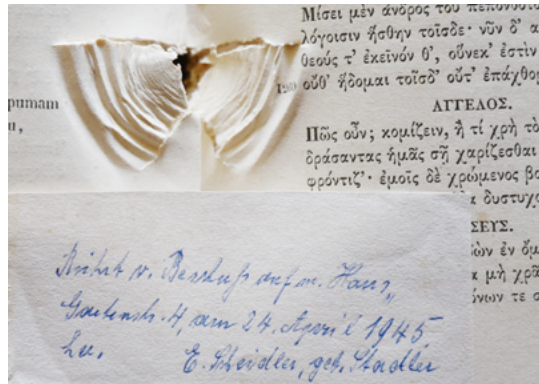 Μίσει μὲν ἀνδρὸς τοῦ πεπονθότ
λόγοισιν ἥσθην τοῖσδε· νῦν δ' α
θεούς τ' ἐκεῖνόν θ', οὕνεκ' ἐστὶν
οὔθ' ἥδομαι τοῖσδ' οὔτ' ἐπάχθο
ΑΓΓΕΛΟΣ.
Πῶς οὖν; κομίζειν, ἢ τί χρὴ τὸ
δράσαντας ἡμᾶς σῇ χαρίζεσθαι
φρόντιζ'· ἐμοῖς δὲ χρώμενος βο
δυστυχο
ΣΕΥΣ.
ὼν ἐν ὄμ
μὴ χρᾶ
όνων τε σ
pumam
u,
v. Beschuß auf m. Haus,
Gartenstr. 4, am 24. April 1945
E. Scheidler, geb. Stadler